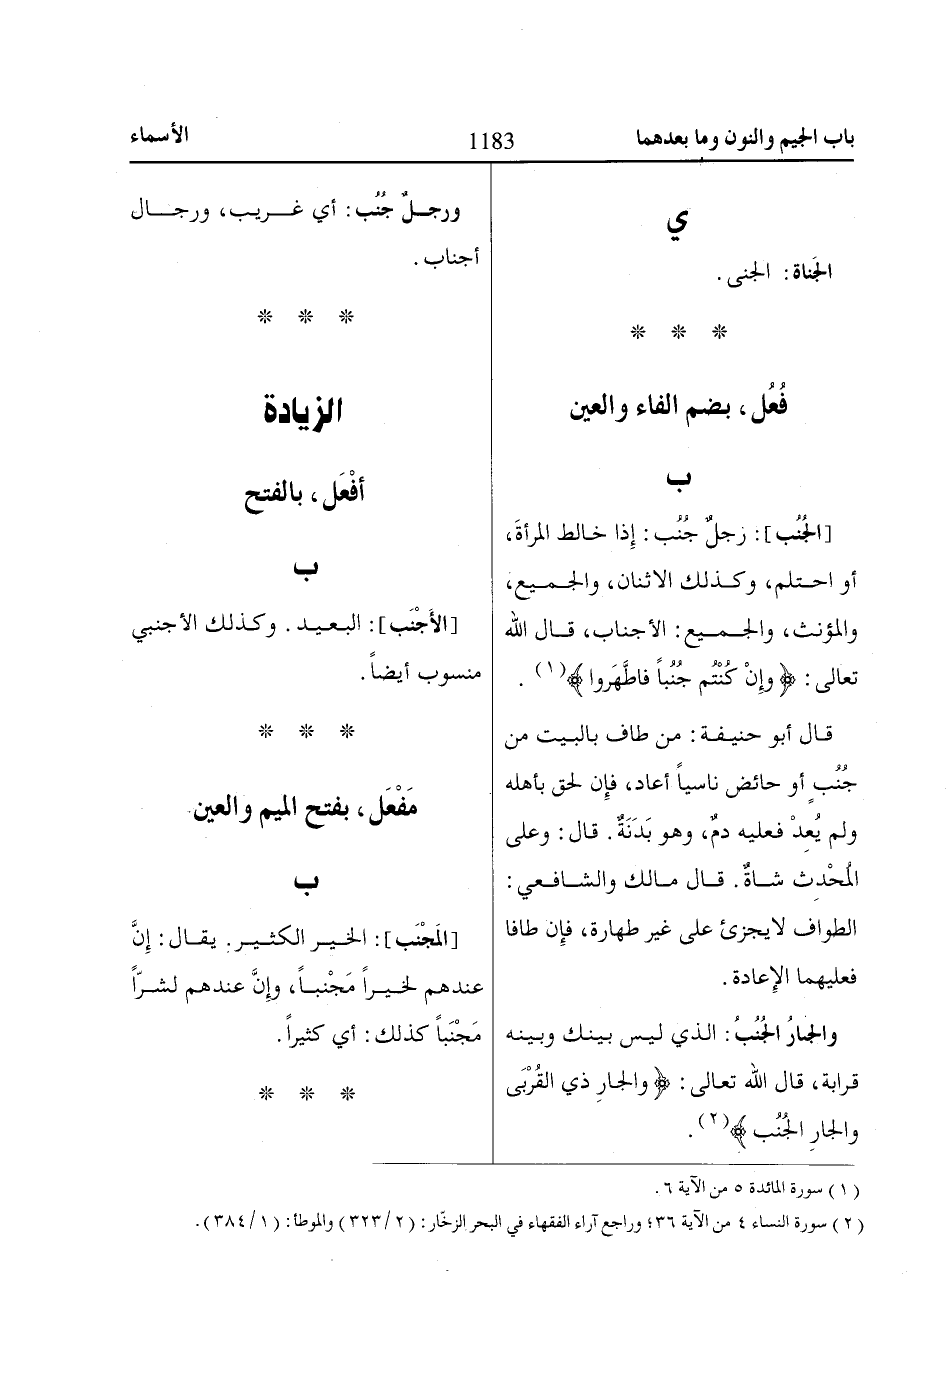 باب الجيم والنون وما بعدهما
1183
الأسماء
ي
الجَناة: الجنى.
* * *
فُعُل، بضم الفاء والعين
ب
[الجُنُب]: رَجلٌ جُنُب: إذا خالط المرأةَ،
أو احتلم، وكذلك الاثنان، والجميع،
والمؤنث، والجميع: الأجناب، قال الله
تعالى: ﴿وإنْ كُنْتُم جُنُباً فاطَّهَروا﴾(١).
قال أبو حنيفة: من طاف بالبيت من
جُنُبٍ أو حائض ناسياً أعاد، فإن لحق بأهله
ولم يُعِدْ فعليه دمٌ، وهو بَدَنَةٌ. قال: وعلى
المُحْدِث شاةٌ. قال مالك والشافعي:
الطواف لا يجزئ على غير طهارة، فإن طافا
فعليهما الإعادة.
والجارُ الجُنُبُ: الذي ليس بينك وبينه
قرابة، قال الله تعالى: ﴿والجارِ ذي القُرْبَى
والجارِ الجُنُب﴾(٢).
ورجلٌ جُنُب: أي غريب، ورجال
أجناب.
* * *
الزيادة
أفْعَل، بالفتح
ب
[الأَجْنَب]: البعيد. وكذلك الأجنبي
منسوب أيضاً.
* * *
مَفْعَل، بفتح الميم والعين
ب
[المَجْنَب]: الخير الكثير. يقال: إنَّ
عندهم لخيراً مَجْنباً، وإنَّ عندهم لشرّاً
مَجْنَباً كذلك: أي كثيراً.
* * *
(١) سورة المائدة ٥ من الآية ٦.
(٢) سورة النساء ٤ من الآية ٣٦؛ وراجع آراء الفقهاء في البحر الزخّار: (٢/٣٢٣) والموطأ: (١/٣٨٤).